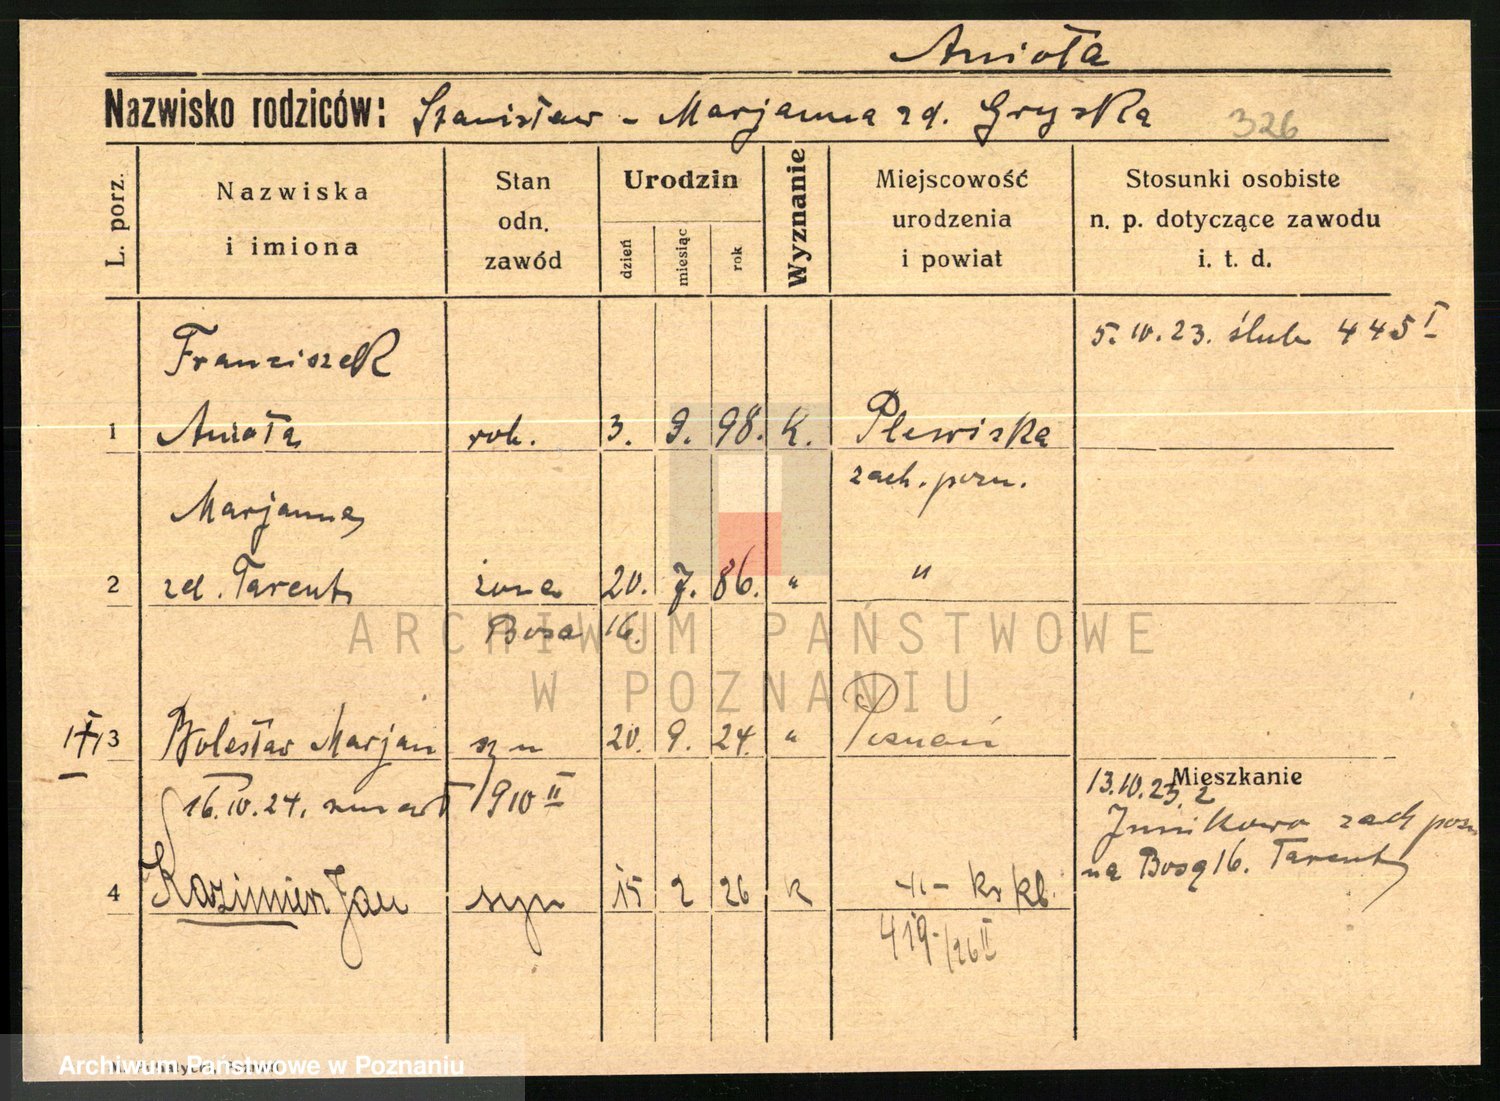 Anioła
Nazwisko rodziców: Stanisław - Marjanna zd. Gryska 326
L. porz.
Nazwiska
i imiona
Stan
odn.
zawód
Urodzin
dzień
miesiąc
rok
Wyznanie
Miejscowość
urodzenia
i powiat
Stosunki osobiste
n. p. dotyczące zawodu
i. t. d.
5. 10. 23. ślub 445 I
Franciszek
1 Anioła rob. 3. 9. 98. K. Plewiska
zach. pozn.
Marjanna
2 zd. Tarent żona 20. 7. 86. " "
Bosa 16.
3 Bolesław Marjan syn 20. 9. 24. " Poznań
16. 10. 24. zmarł 1910 II
Mieszkanie
13. 10. 23.
Junikowo zach pozn
na Bosą 16. Tarent
4 Kazimierz Jan syn 15 2 26 k
419/26 II
ARCHIWUM PAŃSTWOWE
W POZNANIU
Archiwum Państwowe w Poznaniu